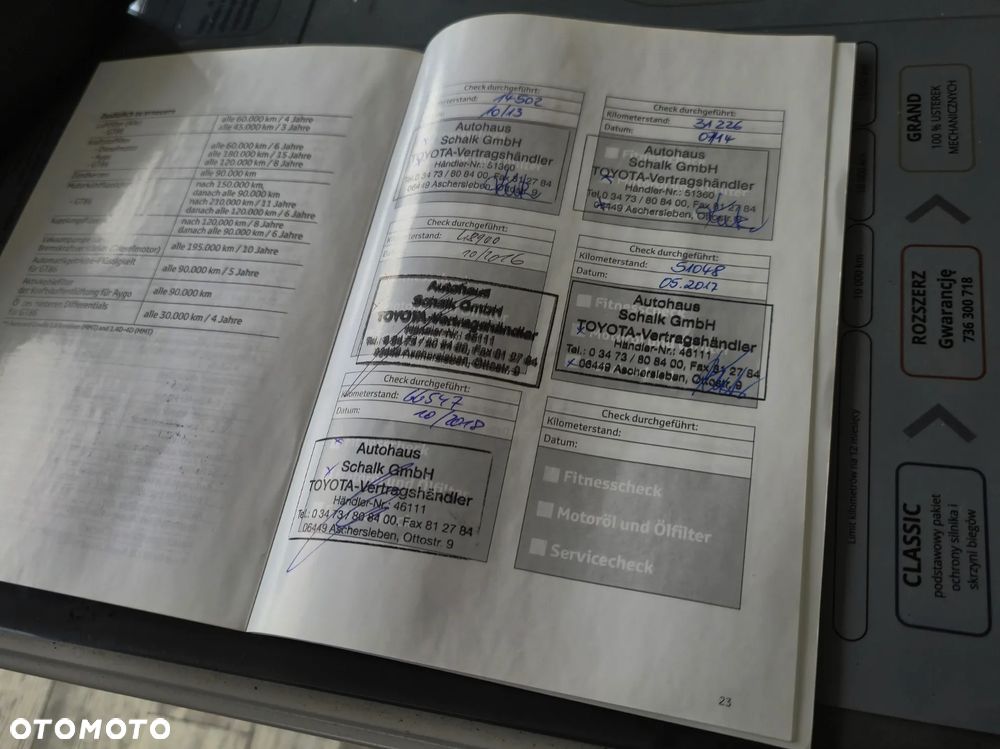 Zusätzlich zu erneuern
alle 60.000 km / 4 Jahre
alle 45.000 km / 3 Jahre
- GT86
alle 60.000 km / 6 Jahre
alle 180.000 km / 15 Jahre
alle 120.000 km / 8 Jahre
- Aygo
alle 90.000 km
nach 150.000 km,
danach alle 90.000 km
nach 210.000 km / 11 Jahren
danach alle 120.000 km / 6 Jahre
- GT86
nach 120.000 km / 8 Jahren
danach alle 90.000 km / 6 Jahre
alle 195.000 km / 10 Jahre
für GT86
alle 90.000 km / 5 Jahre
für Aygo
alle 90.000 km
alle 30.000 km / 4 Jahre
für GT86
Check durchgeführt:
Kilometerstand: 14502
10/13
Autohaus
Schalk GmbH
TOYOTA-Vertragshändler
Händler-Nr.: 51360
Tel. 0 34 73 / 80 84 00, Fax 81 27 84
06449 Aschersleben, Ottostr. 9
Check durchgeführt:
Kilometerstand: 31226
Datum: 07/14
Autohaus
Schalk GmbH
TOYOTA-Vertragshändler
Händler-Nr.: 51360
Tel. 0 34 73 / 80 84 00, Fax 81 27 84
06449 Aschersleben, Ottostr. 9
Check durchgeführt:
Kilometerstand: 48900
10/2016
Autohaus
Schalk GmbH
TOYOTA-Vertragshändler
Händler-Nr.: 46111
Tel.: 0 34 73 / 80 84 00, Fax 81 27 84
06449 Aschersleben, Ottostr. 9
Check durchgeführt:
Kilometerstand: 51048
Datum: 05.2017
Autohaus
Schalk GmbH
TOYOTA-Vertragshändler
Händler-Nr.: 46111
Tel.: 0 34 73 / 80 84 00, Fax 81 27 84
06449 Aschersleben, Ottostr. 9
Check durchgeführt:
Kilometerstand: 66547
Datum: 10/2018
Autohaus
Schalk GmbH
TOYOTA-Vertragshändler
Händler-Nr.: 46111
Tel.: 0 34 73 / 80 84 00, Fax 81 27 84
06449 Aschersleben, Ottostr. 9
Check durchgeführt:
Kilometerstand:
Datum:
Fitnesscheck
Motoröl und Ölfilter
Servicecheck
23
GRAND
100 % USTEREK
MECHANICZNYCH
ROZSZERZ
Gwarancję
736 300 718
CLASSIC
podstawowy pakiet
ochrony silnika i
skrzyni biegów
10 000 km
Limit kilometrów na 12 miesięcy
OTOMOTO